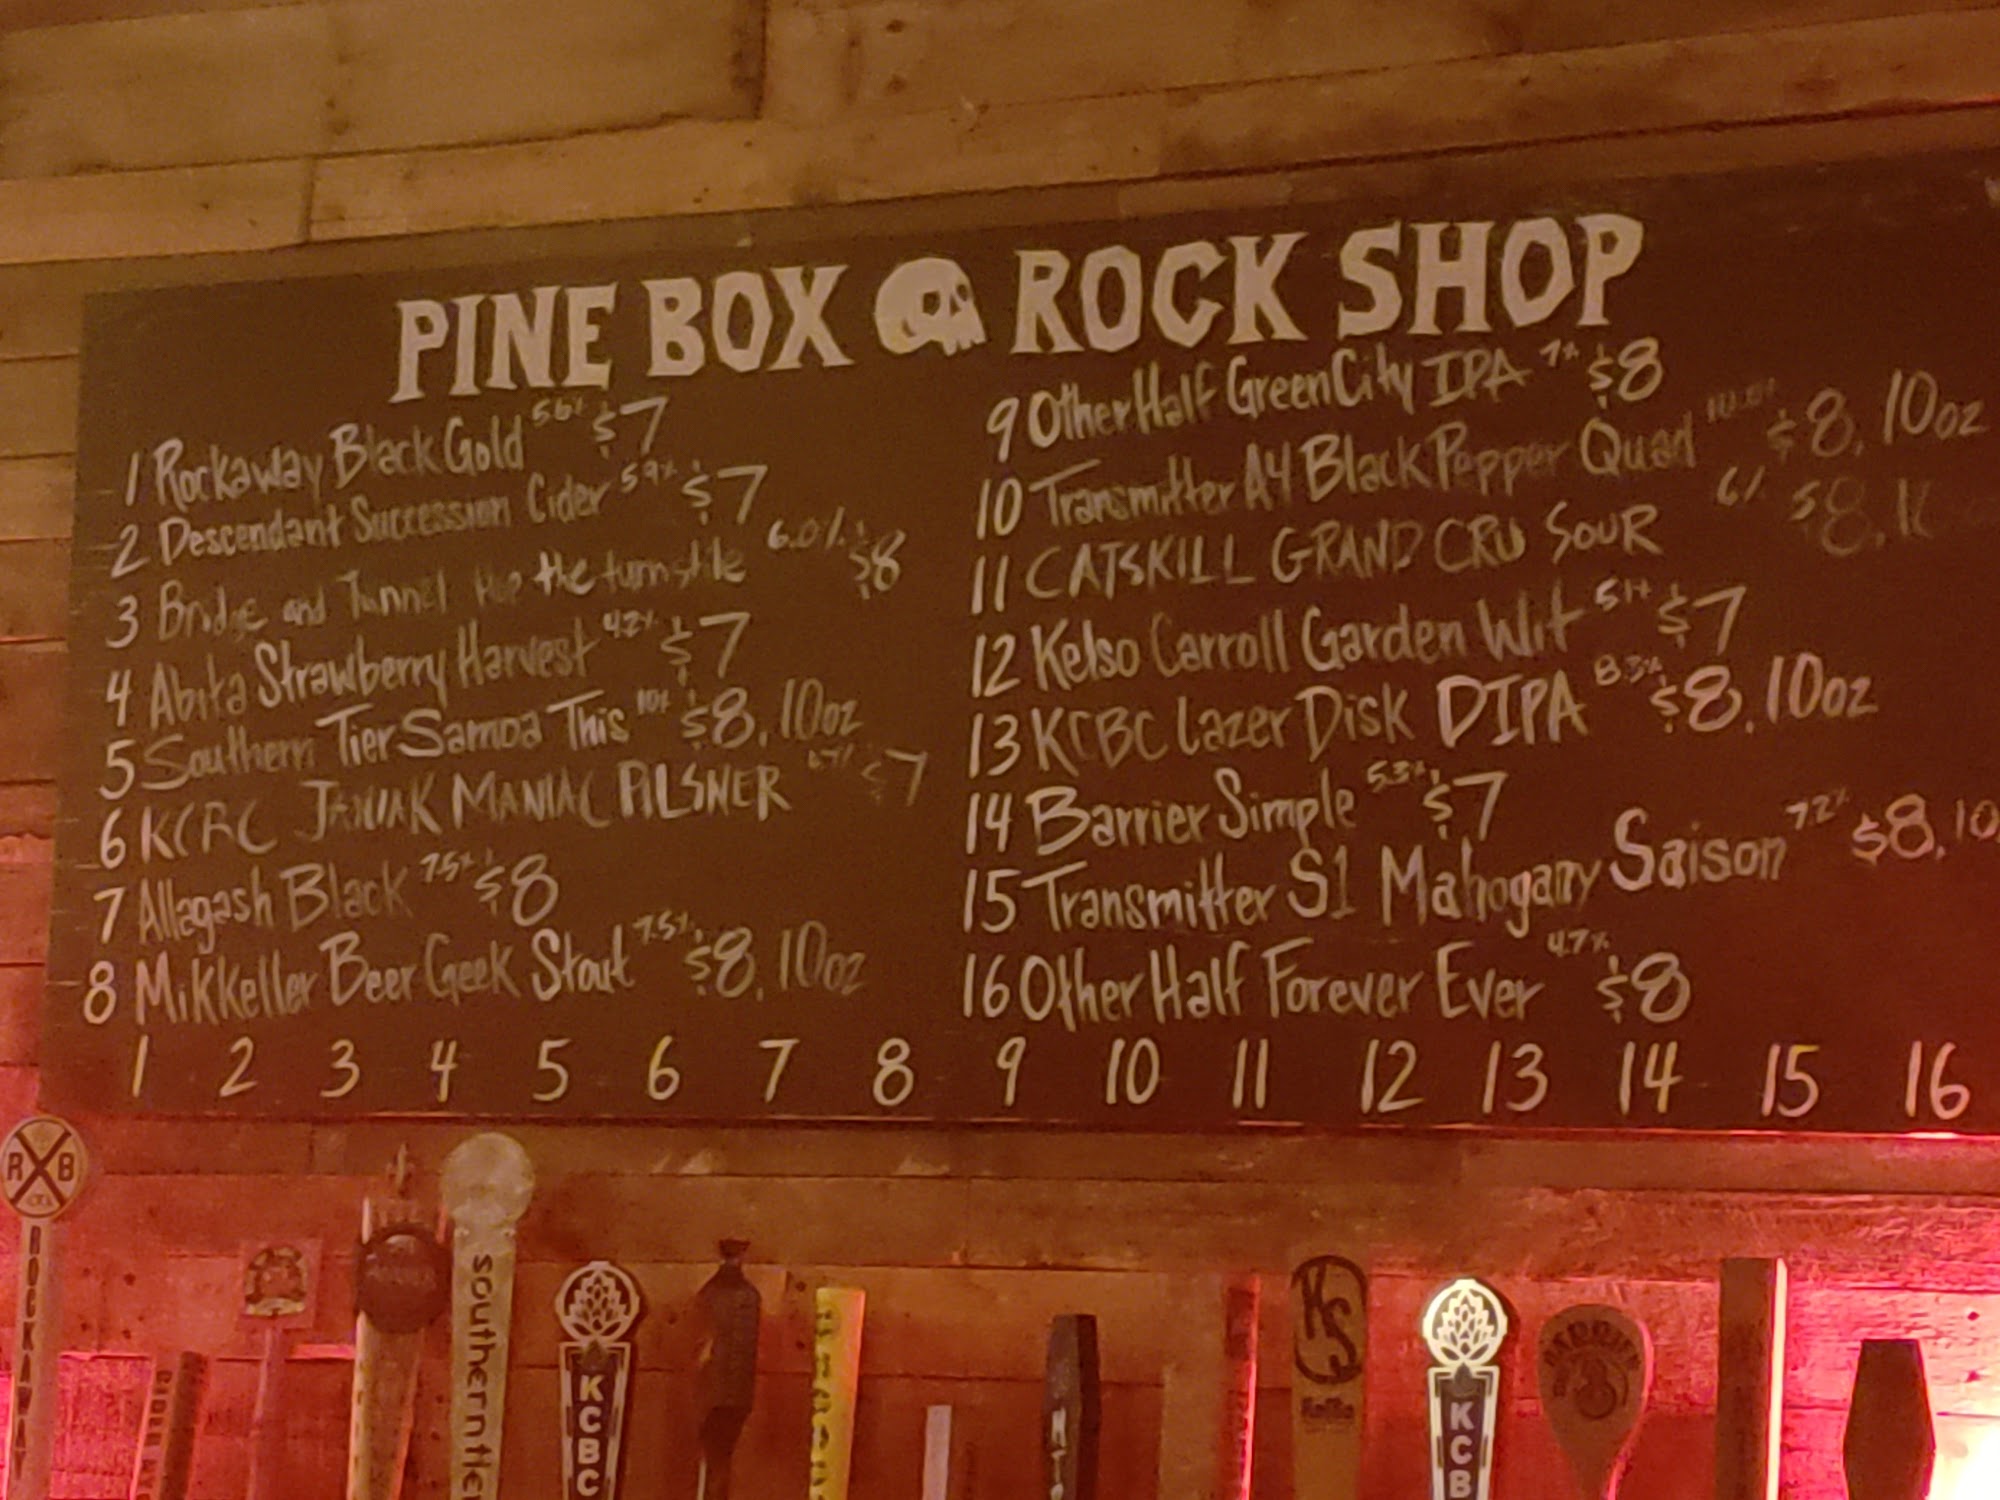 PINE BOX ROCK SHOP
1 Rockaway Black Gold 5.6% $7
2 Descendant Succession Cider 5.9% $7
3 Bridge and Tunnel Hop the turnstile 6.0% $8
4 Abita Strawberry Harvest 4.2% $7
5 Southern Tier Samoa This 10% $8, 10oz
6 KCBC JANIAK MANIAC PILSNER $7
7 Allagash Black 7.5% $8
8 Mikkeller Beer Geek Stout 7.5% $8, 10oz
9 Other Half Green City IPA 7% $8
10 Transmitter A4 Black Pepper Quad $8, 10oz
11 CATSKILL GRAND CRU SOUR 6% $8,
12 Kelso Carroll Garden Wit $7
13 KCBC Lazer Disk DIPA 8.3% $8, 10oz
14 Barrier Simple 5.3% $7
15 Transmitter S1 Mahogany Saison 7.2% $8, 10
16 Other Half Forever Ever 4.7% $8
1 2 3 4 5 6 7 8 9 10 11 12 13 14 15 16
R B
ROCKAWAY
southerntie
KCBC
KS
KCB